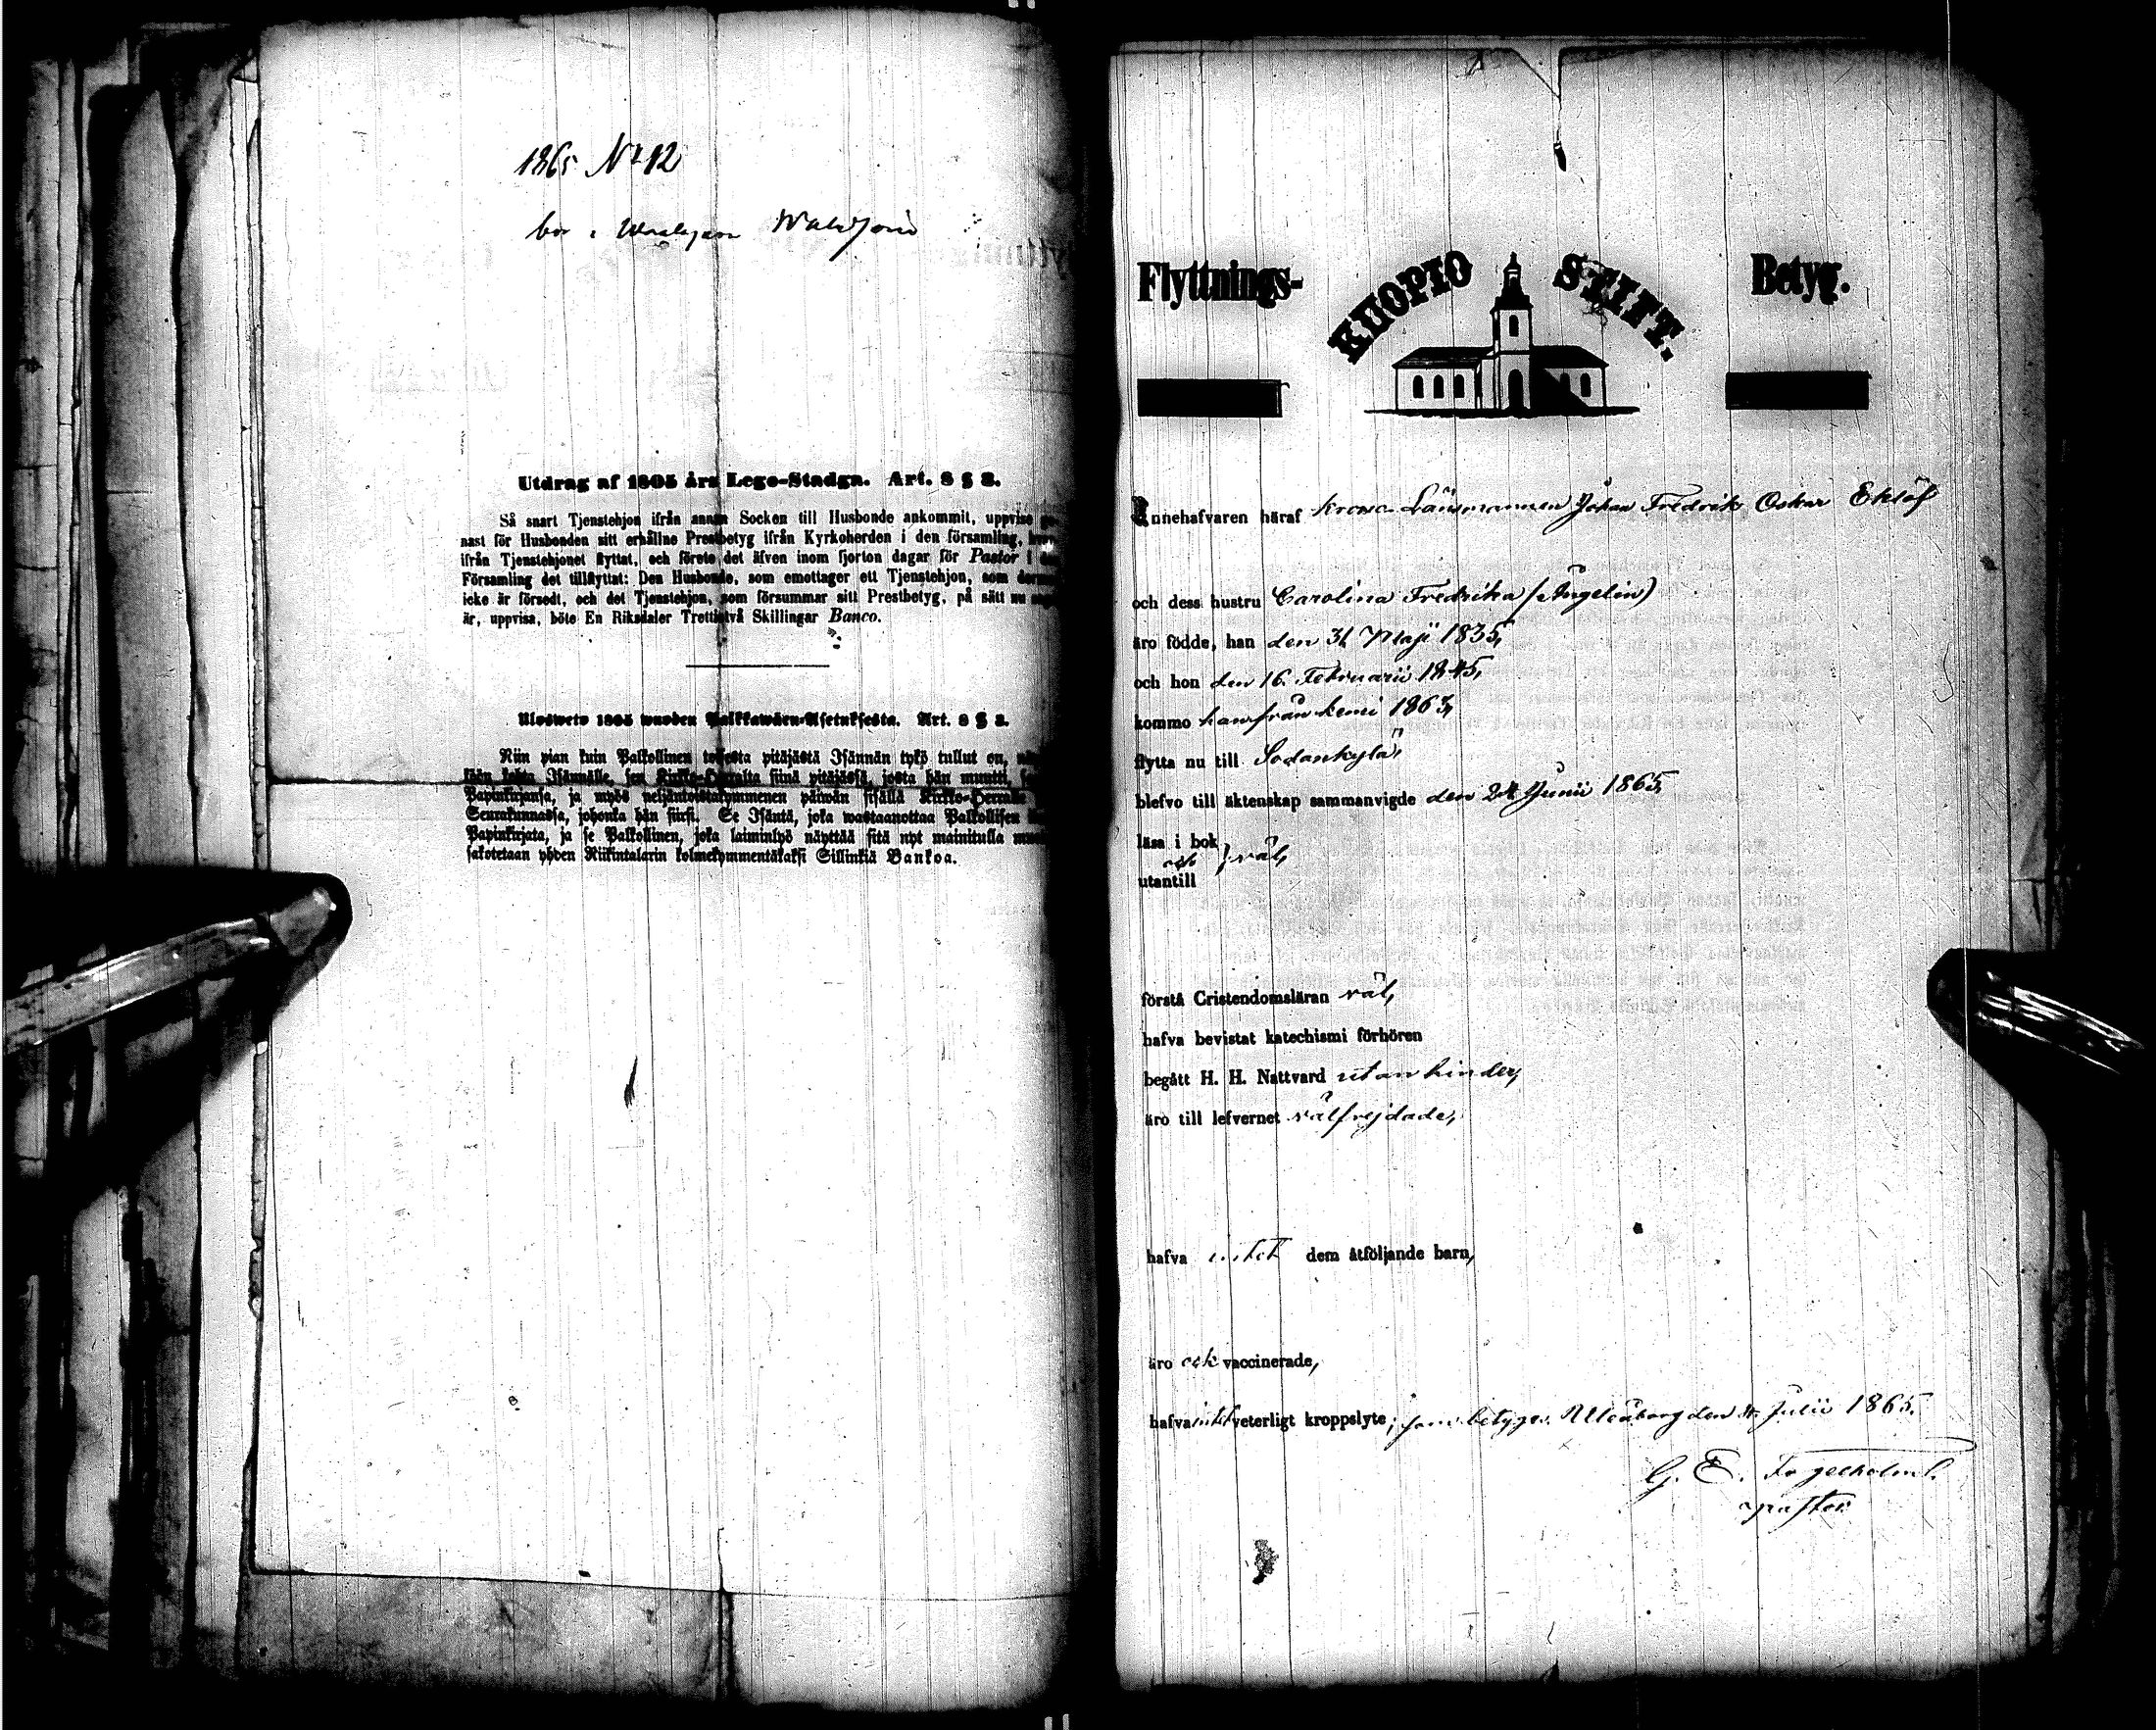 1865 No 12
bor i
Utdrag af 1805 års Lego-Stadga. Art. 8 § 3.
Så snart Tjenstehjon ifrån annan Socken till Husbonde ankommit, uppvise
nast för Husbonden sitt erhållne Prestbetyg ifrån Kyrkoherden i den församling,
ifrån Tjenstehjonet flyttat, och förete det äfven inom fjorton dagar för Pastor i
Församling det tillflyttat: Den Husbonde, som emottager ett Tjenstehjon, som
icke är försedt, och det Tjenstehjon, som försummar sitt Prestbetyg, på sätt nu
är, uppvisa, böte En Riksdaler Trettiotvå Skillingar Banco.
Ulosweto 1805 wuoden Palkkawäen-Asetuksesta. Art. 8 § 3.
Niin pian kuin Palkollinen toisesta pitäjästä Isännän tykö tullut on,
Isännälle, sen Kirkko-Herralta siinä pitäjässä, josta hän muutti,
Papinkirjansa, ja myös neljäntoistakymmenen päiwän sisällä Kirkko-Herralle
Seurakunnassa, johonka hän siirsi. Se Isäntä, joka wastaanottaa Palkollisen
Papinkirjata, ja se Palkollinen, joka laiminlyö näyttää sitä nyt mainitulla
sakotetaan yhden Riikintalarin kolmekymmentäkaksi Sillinkiä Bankoa.
Flyttnings- KUOPIO STIFT. Betyg.
Innehafvaren häraf Krono Länsmannen Johan Fredrik Oskar Eklöf
och dess hustru Carolina Fredrika (Angelin)
äro födde, han den 31 Maji 1835,
och hon den 16 Februarii 1845,
kommo han från Kemi 1863,
flytta nu till Sodankylä,
blefvo till äktenskap sammanvigde den 24 Junii 1865,
läsa i bok
och } väl,
utantill
förstå Cristendomsläran väl,
hafva bevistat katechismi förhören
begått H. H. Nattvard utan hinder,
äro till lefvernet välfrejdade,
hafva intet dem åtföljande barn,
äro ock vaccinerade,
hafva intet veterligt kroppslyte; som betygar. Uleåborg den 4 Julii 1865.
G. E. Fogelholm.
pastor